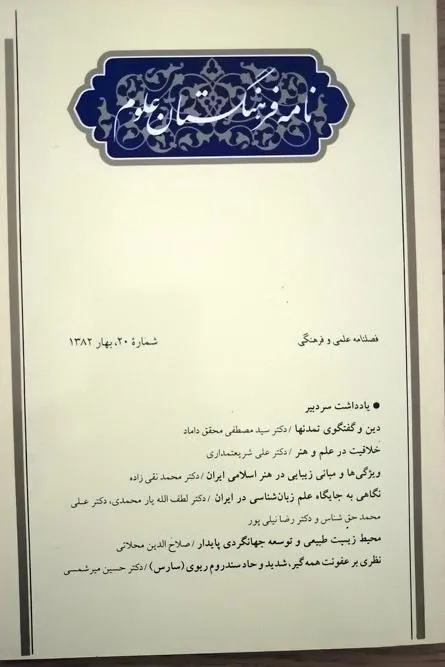 نامه فرهنگستان علوم
فصلنامه علمی و فرهنگی
شمارهٔ ۲۰، بهار ۱۳۸۲
● یادداشت سردبیر
دین و گفتگوی تمدنها / دکتر سید مصطفی محقق داماد
خلاقیت در علم و هنر / دکتر علی شریعتمداری
ویژگی‌ها و مبانی زیبایی در هنر اسلامی ایران / دکتر محمد نقی زاده
نگاهی به جایگاه علم زبان‌شناسی در ایران / دکتر لطف الله یار محمدی، دکتر علی
محمد حق شناس و دکتر رضا نیلی پور
محیط زیست طبیعی و توسعه جهانگردی پایدار / صلاح الدین محلاتی
نظری بر عفونت همه‌گیر، شدید و حاد سندروم ریوی (سارس) / دکتر حسین میرشمسی